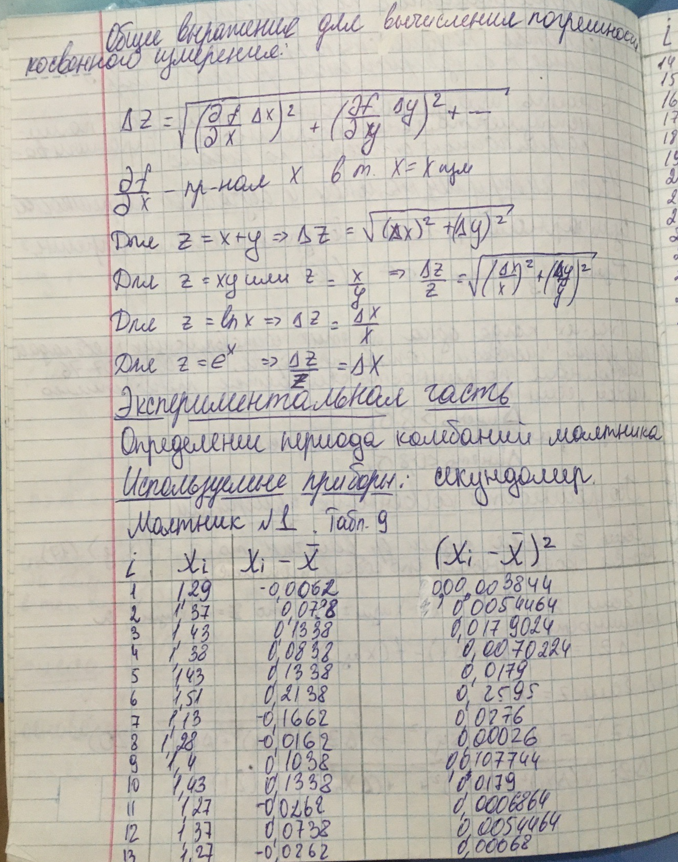 Общие выражение для вычисления погрешности
косвенного измерения:
Δz = √((∂f/∂x Δx)² + (∂f/∂y Δy)² + ...
∂f/∂x - пр-ная x в т. x = x изм
Для z = x+y => Δz = √((Δx)² + (Δy)²)
Для z = xy или z = x/y => Δz/z = √((Δx/x)² + (Δy/y)²)
Для z = ln x => Δz = Δx/x
Для z = e^x => Δz/z = Δx
Экспериментальная часть
Определении периода колебаний маятника
Используемые приборы: секундомер.
Маятник №1. Табл. 9
i Xi Xi - X̄ (Xi - X̄)²
1 1,29 -0,0062 0,00,003844
2 1,37 0,0738 0,0054464
3 1,43 0,1338 0,0179024
4 1,38 0,0838 0,0070224
5 1,43 0,1338 0,0179
6 1,51 0,2138 0,2595
7 1,13 -0,1662 0,0276
8 1,28 -0,0162 0,00026
9 1,4 0,1038 0,0107744
10 1,43 0,1338 0,0179
11 1,27 -0,0262 0,0006864
12 1,37 0,0738 0,0054464
13 1,27 -0,0262 0,00068
i
14
15
16
17
18
19